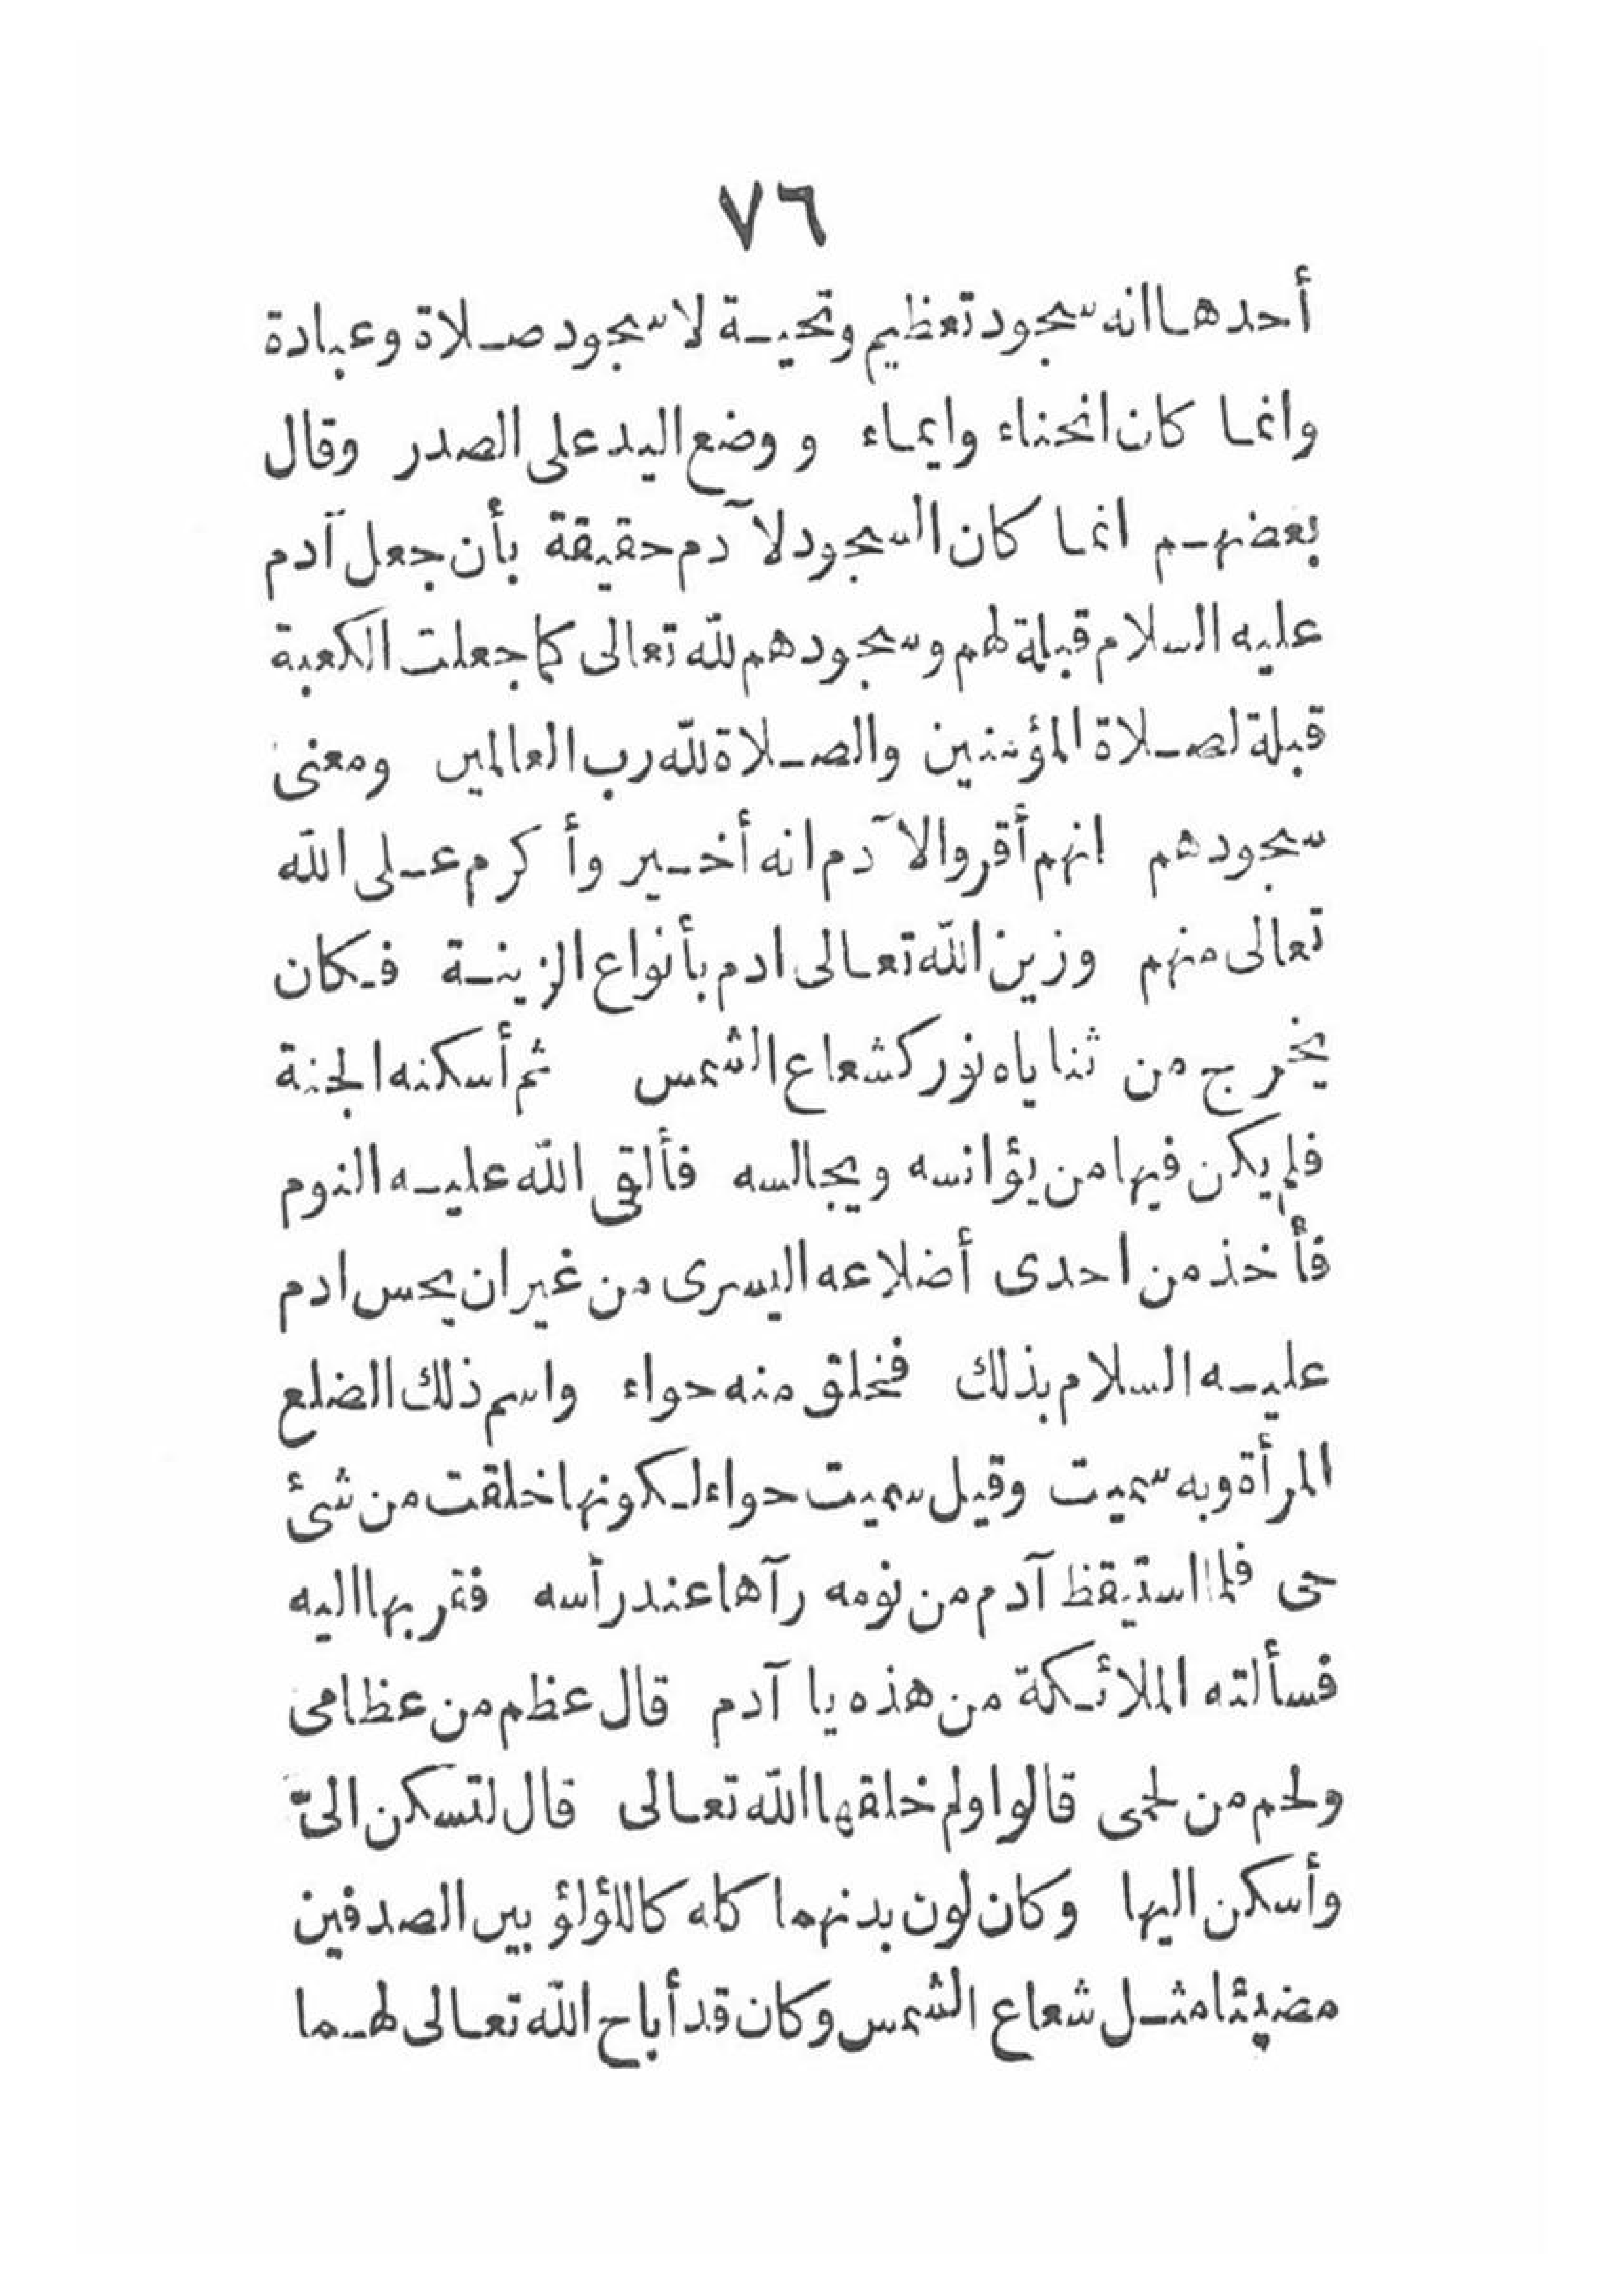 ٧٦
أحدها انه سجود تعظيم وتحيـة لا سجود صـلاة وعبادة
وانما كان انحناء وايماء و وضع اليد على الصدر وقال
بعضهـم انما كان السجود لآدم حقيقة بأن جعل آدم
عليه السلام قبلة لهم وسجودهم لله تعالى كما جعلت الكعبة
قبلة لصـلاة المؤمنين والصـلاة لله رب العالمين ومعنى
سجودهم انهم أقروا لآدم انه أخـير وأكرم عـلى الله
تعالى منهم وزين الله تعالى ادم بأنواع الزينـة فـكان
يخرج من ثناياه نور كشعاع الشمس ثم أسكنه الجنة
فلم يكن فيها من يؤانسه ويجالسه فألقى الله عليـه النوم
فأخذ من احدى أضلاعه اليسرى من غير ان يحس ادم
عليـه السلام بذلك فخلق منه حواء واسم ذلك الضلع
المرأة وبه سميت وقيل سميت حواء لـكونها خلقت من شئ
حى فلما استيقظ آدم من نومه رآها عند رأسه فقربها اليه
فسألته الملائـكة من هذه يا آدم قال عظم من عظامى
ولحم من لحمى قالوا ولم خلقها الله تعالى قال لتسكن الىّ
وأسكن اليها وكان لون بدنهما كله كاللؤلؤ بين الصدفين
مضيئا مثـل شعاع الشمس وكان قد أباح الله تعالى لهـما